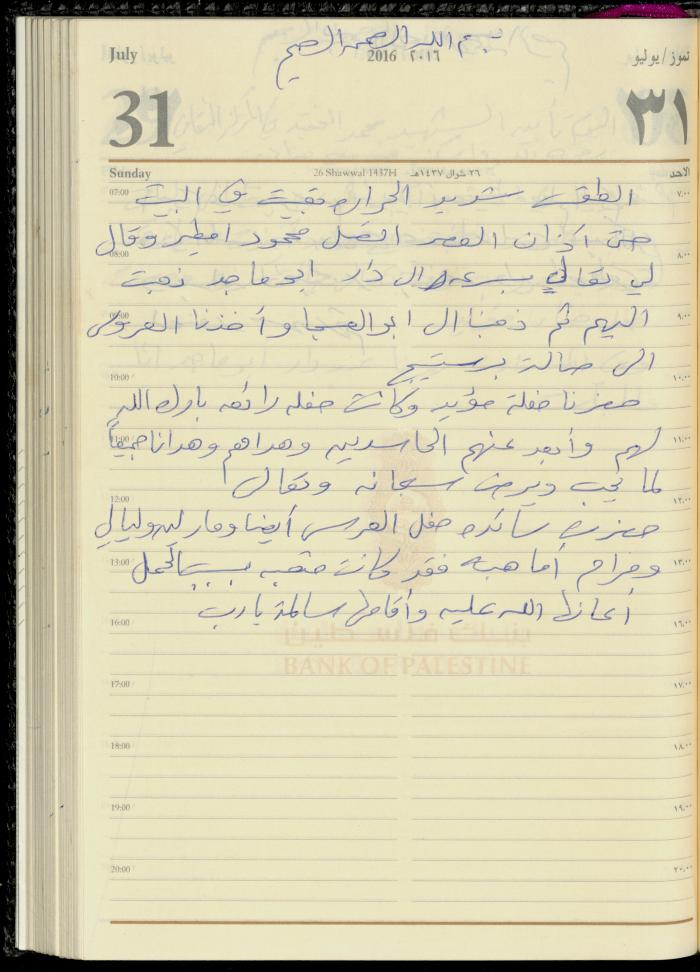 بسم الله الرحمن الرحيم
July 2016 ٢٠١٦ تموز / يوليو
31 ٣١
Sunday 26 Shawwal 1437H ٢٦ شوال ١٤٣٧هـ الأحد
الطقس شديد الحرارة بقيت في البيت
حتى آذان العصر اتصل محمود افطير وقال
لي تعالي بسرعة ال دار ابو ماجد ذهبت
اليهم ثم ذهبنا ال ابو العسجا وأخذنا العروس
الى صالة برستيج
حضرنا حفلة مؤيد وكانت حفلة رائعه بارك الله
لهم وأبعد عنهم الحاسدين وهداهم وهدانا جميعاً
لما يحب ويرضى سبحانه وتعالى
حضرت سائده حفل العرس أيضا وماريه وليالي
ومرام أما هبه فقد كانت متعبه بسبب الحمل
أعانها الله عليه وأقامها سالمة يا رب
بنك فلسطين
BANK OF PALESTINE
07:00 ٧:٠٠
08:00 ٨:٠٠
09:00 ٩:٠٠
10:00 ١٠:٠٠
11:00 ١١:٠٠
12:00 ١٢:٠٠
13:00 ١٣:٠٠
16:00 ١٦:٠٠
17:00 ١٧:٠٠
18:00 ١٨:٠٠
19:00 ١٩:٠٠
20:00 ٢٠:٠٠